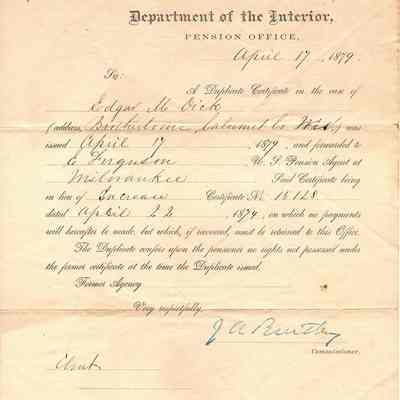 Department of the Interior,
PENSION OFFICE,
April 17, 1879.
To:
A Duplicate Certificate in the case of
Edgar M. Dick
(address, Calumet Co Wis) was
issued April 17, 1879, and forwarded to
A Ferguson U. S. Pension Agent at
Milwaukee Said Certificate being
in lieu of Increase Certificate No. 18128
dated April 22, 1879, on which no payments
will hereafter be made, but which, if recovered, must be returned to this Office.
The Duplicate confers upon the pensioner no rights not possessed under
the former certificate at the time the Duplicate issued.
Former Agency
Very respectfully,
J A Bentley
Commissioner.